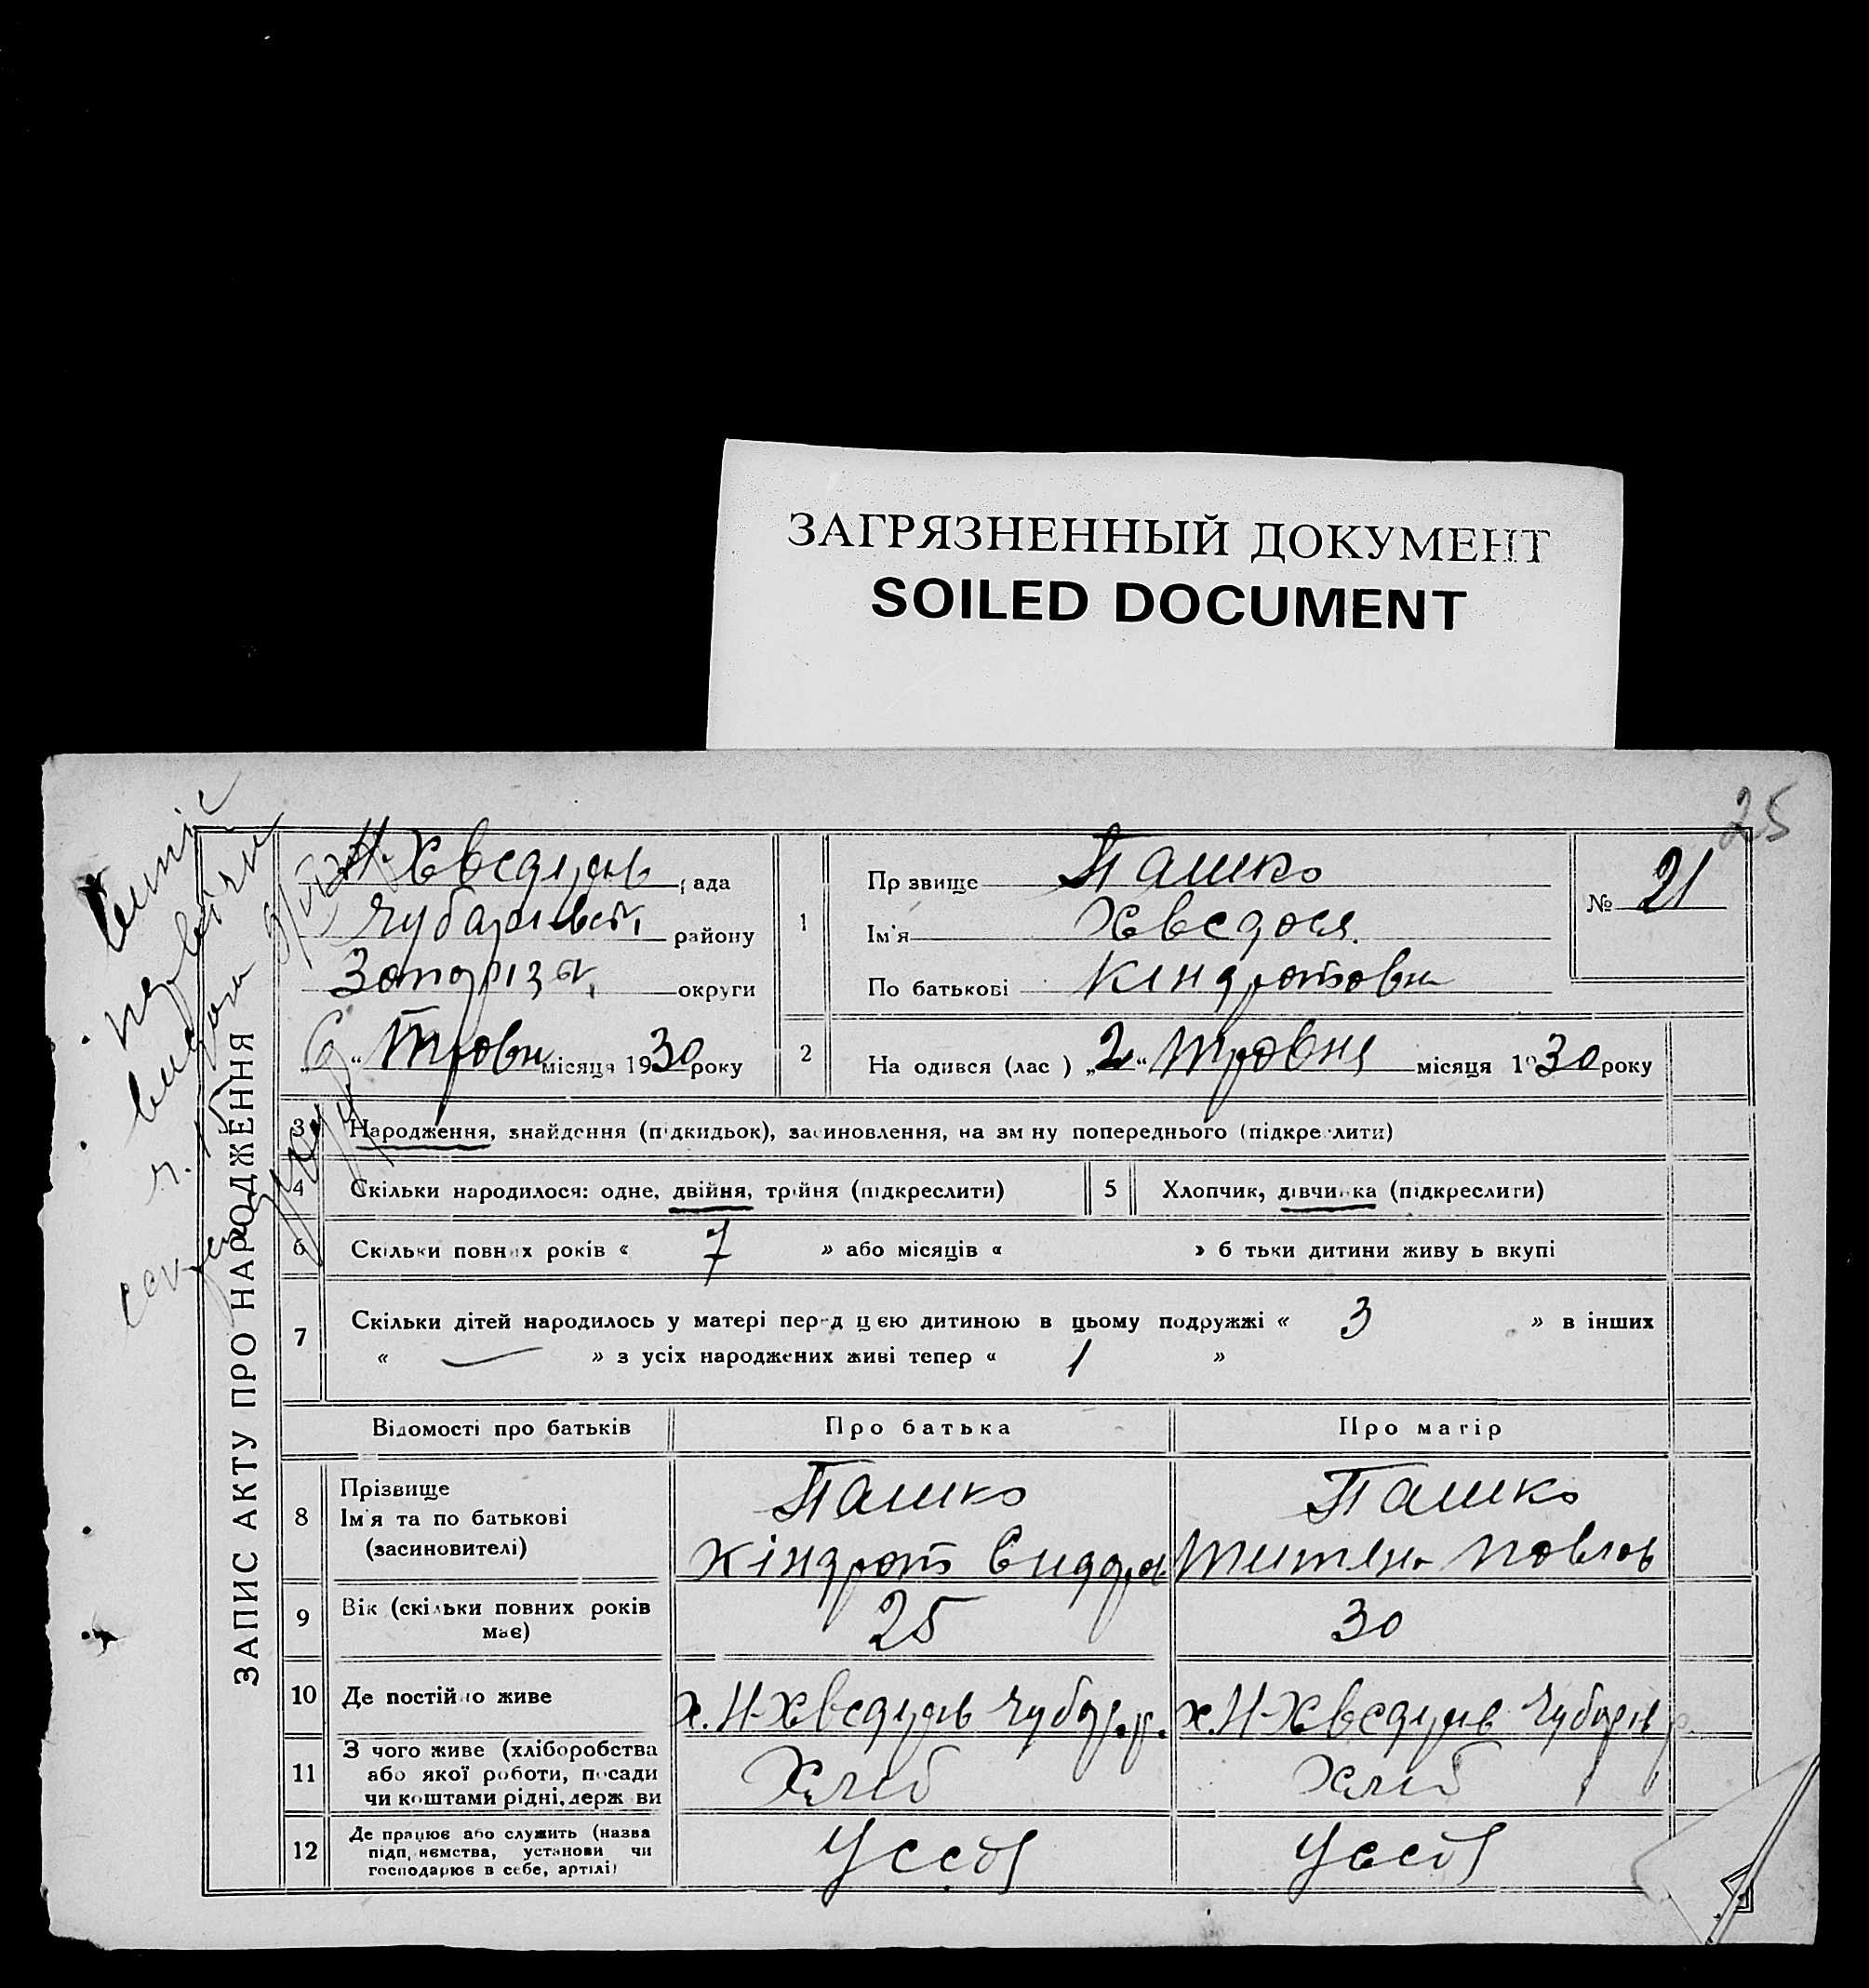 ЗАГРЯЗНЕННЫЙ ДОКУМЕНТ
SOILED DOCUMENT
25
ЗАПИС АКТУ ПРО НАРОДЖЕННЯ
Н. Хведорів рада
Чубарівськ району
Запорізьк округи
6 " Травн місяця 1930 року
1
Пр звище Пашко
Ім'я Хведося.
По батькові Кіндротовн
№ 21
2 На одився (лас ) „ 2 " Травня місяця 1930 року
3 Народження, знайдення (підкидьок), засиновлення, на зм ну попереднього (підкре лити)
4 Скільки народилося: одне, двійня, трійня (підкреслити)
5 Хлопчик, дівчинка (підкреслити)
6 Скільки повних років « 7 » або місяців « » б тьки дитини живу ь вкупі
7 Скільки дітей народилось у матері перед цією дитиною в цьому подружжі « 3 » в інших
« — » з усіх народжених живі тепер « 1 »
Відомості про батьків Про батька Про матір
8 Прізвище Пашко Пашко
Ім'я та по батькові
(засиновителі) Кіндрат Сидора Титяна Повлов
9 Вік (скільки повних років має) 25 30
10 Де постійно живе х. Н-Хведорів Чубар.р. х. Н-Хведорів Чубарів р.
11 З чого живе (хліборобства
або якої роботи, посади
чи коштами рідні, держ ви Хліб Хліб
12 Де працює або служить (назва
підп. иємства, установи чи
господарює в себе, артілі) У себ У себ